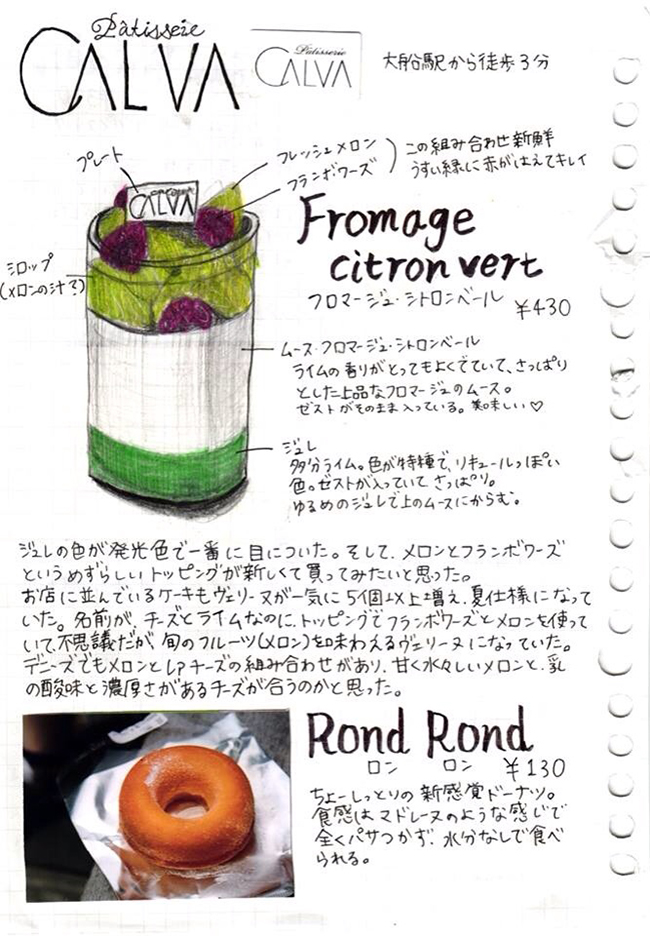 Pâtisserie
CALVA
Pâtisserie
CALVA
大船駅から徒歩3分
プレート
フレッシュメロン
フランボワーズ
この組み合わせ新鮮
うすい緑に赤がはえてキレイ
CALVA
Fromage
citron vert
フロマージュ・シトロンベール
¥430
シロップ
(メロンの汁?)
ムース・フロマージュ・シトロンベール
ライムの香りがとってもよくでていて、さっぱり
とした上品なフロマージュのムース。
ゼストがそのまま入っている。美味しい♡
ジュレ
多分ライム。色が特種で、リキュールっぽい
色。ゼストが入っていてさっぱり。
ゆるめのジュレで上のムースにからむ。
ジュレの色が発光色で一番に目についた。そして、メロンとフランボワーズ
というめずらしいトッピングが新しくて買ってみたいと思った。
お店に並んでいるケーキもヴェリーヌが一気に5個以上増え、夏仕様になって
いた。名前が、チーズとライムなのに、トッピングでフランボワーズとメロンを使って
いて、不思議だが、旬のフルーツ(メロン)を味わえるヴェリーヌになっていた。
デニーズでもメロンとレアチーズの組み合わせがあり、甘く水々しいメロンと、乳
の酸味と濃厚さがあるチーズが合うのかと思った。
Rond Rond
ロン ロン
¥130
ちょーしっとりの新感覚ドーナツ。
食感はマドレーヌのような感じで
全くパサつかず、水分なしで食べ
られる。